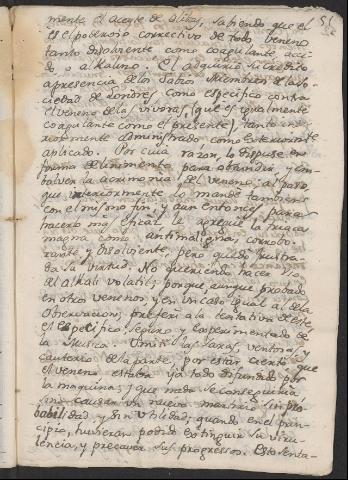 51
mente el aceyte de olivas, sabiendo que el
es el poderoso correctivo de todo veneno
tanto disolvente como coagulante, aci-
do o alkalino. El adquirio su credito
a presencia de los Sabios Miembros de la So-
ciedad de Londres, como especifico contra
el veneno de las vivoras, (que es igualmente
coagulante como el presente) tanto inte-
riormente administrado, como exteriormente
aplicado. Por cuia razon, lo dispuse en
forma de linimento para obtundir, y em-
balver la acrimonia del veneno: al paso
que interiormente lo mandé tambien
con el mismo fin, y aun entonces para
hacerlo mas eficaz le agregué la triaca
magna como antimaligna, corrobo-
rante y disolvente, pero quedó frustra-
da su virtud. No queriendo hacer uso
del alkali volatil; porque, aunque probado
en otros venenos, y en un caso igual al de la
Observacion; preferi a la tentativa de este,
el especifico, seguro y experimentado de
la Musica. Omiti las sajas, ventosas, y
cauterio de la parte, por estar cierto que
el veneno estaba ya todo difundido por
la maquina; y que nada se conseguiria,
sino causar un nuevo martirio sin pro-
babilidad y sin utilidad; quando en el prin-
cipio, huvieran podido extinguir su viru-
lencia, y precaver sus progressos. Esto senta-